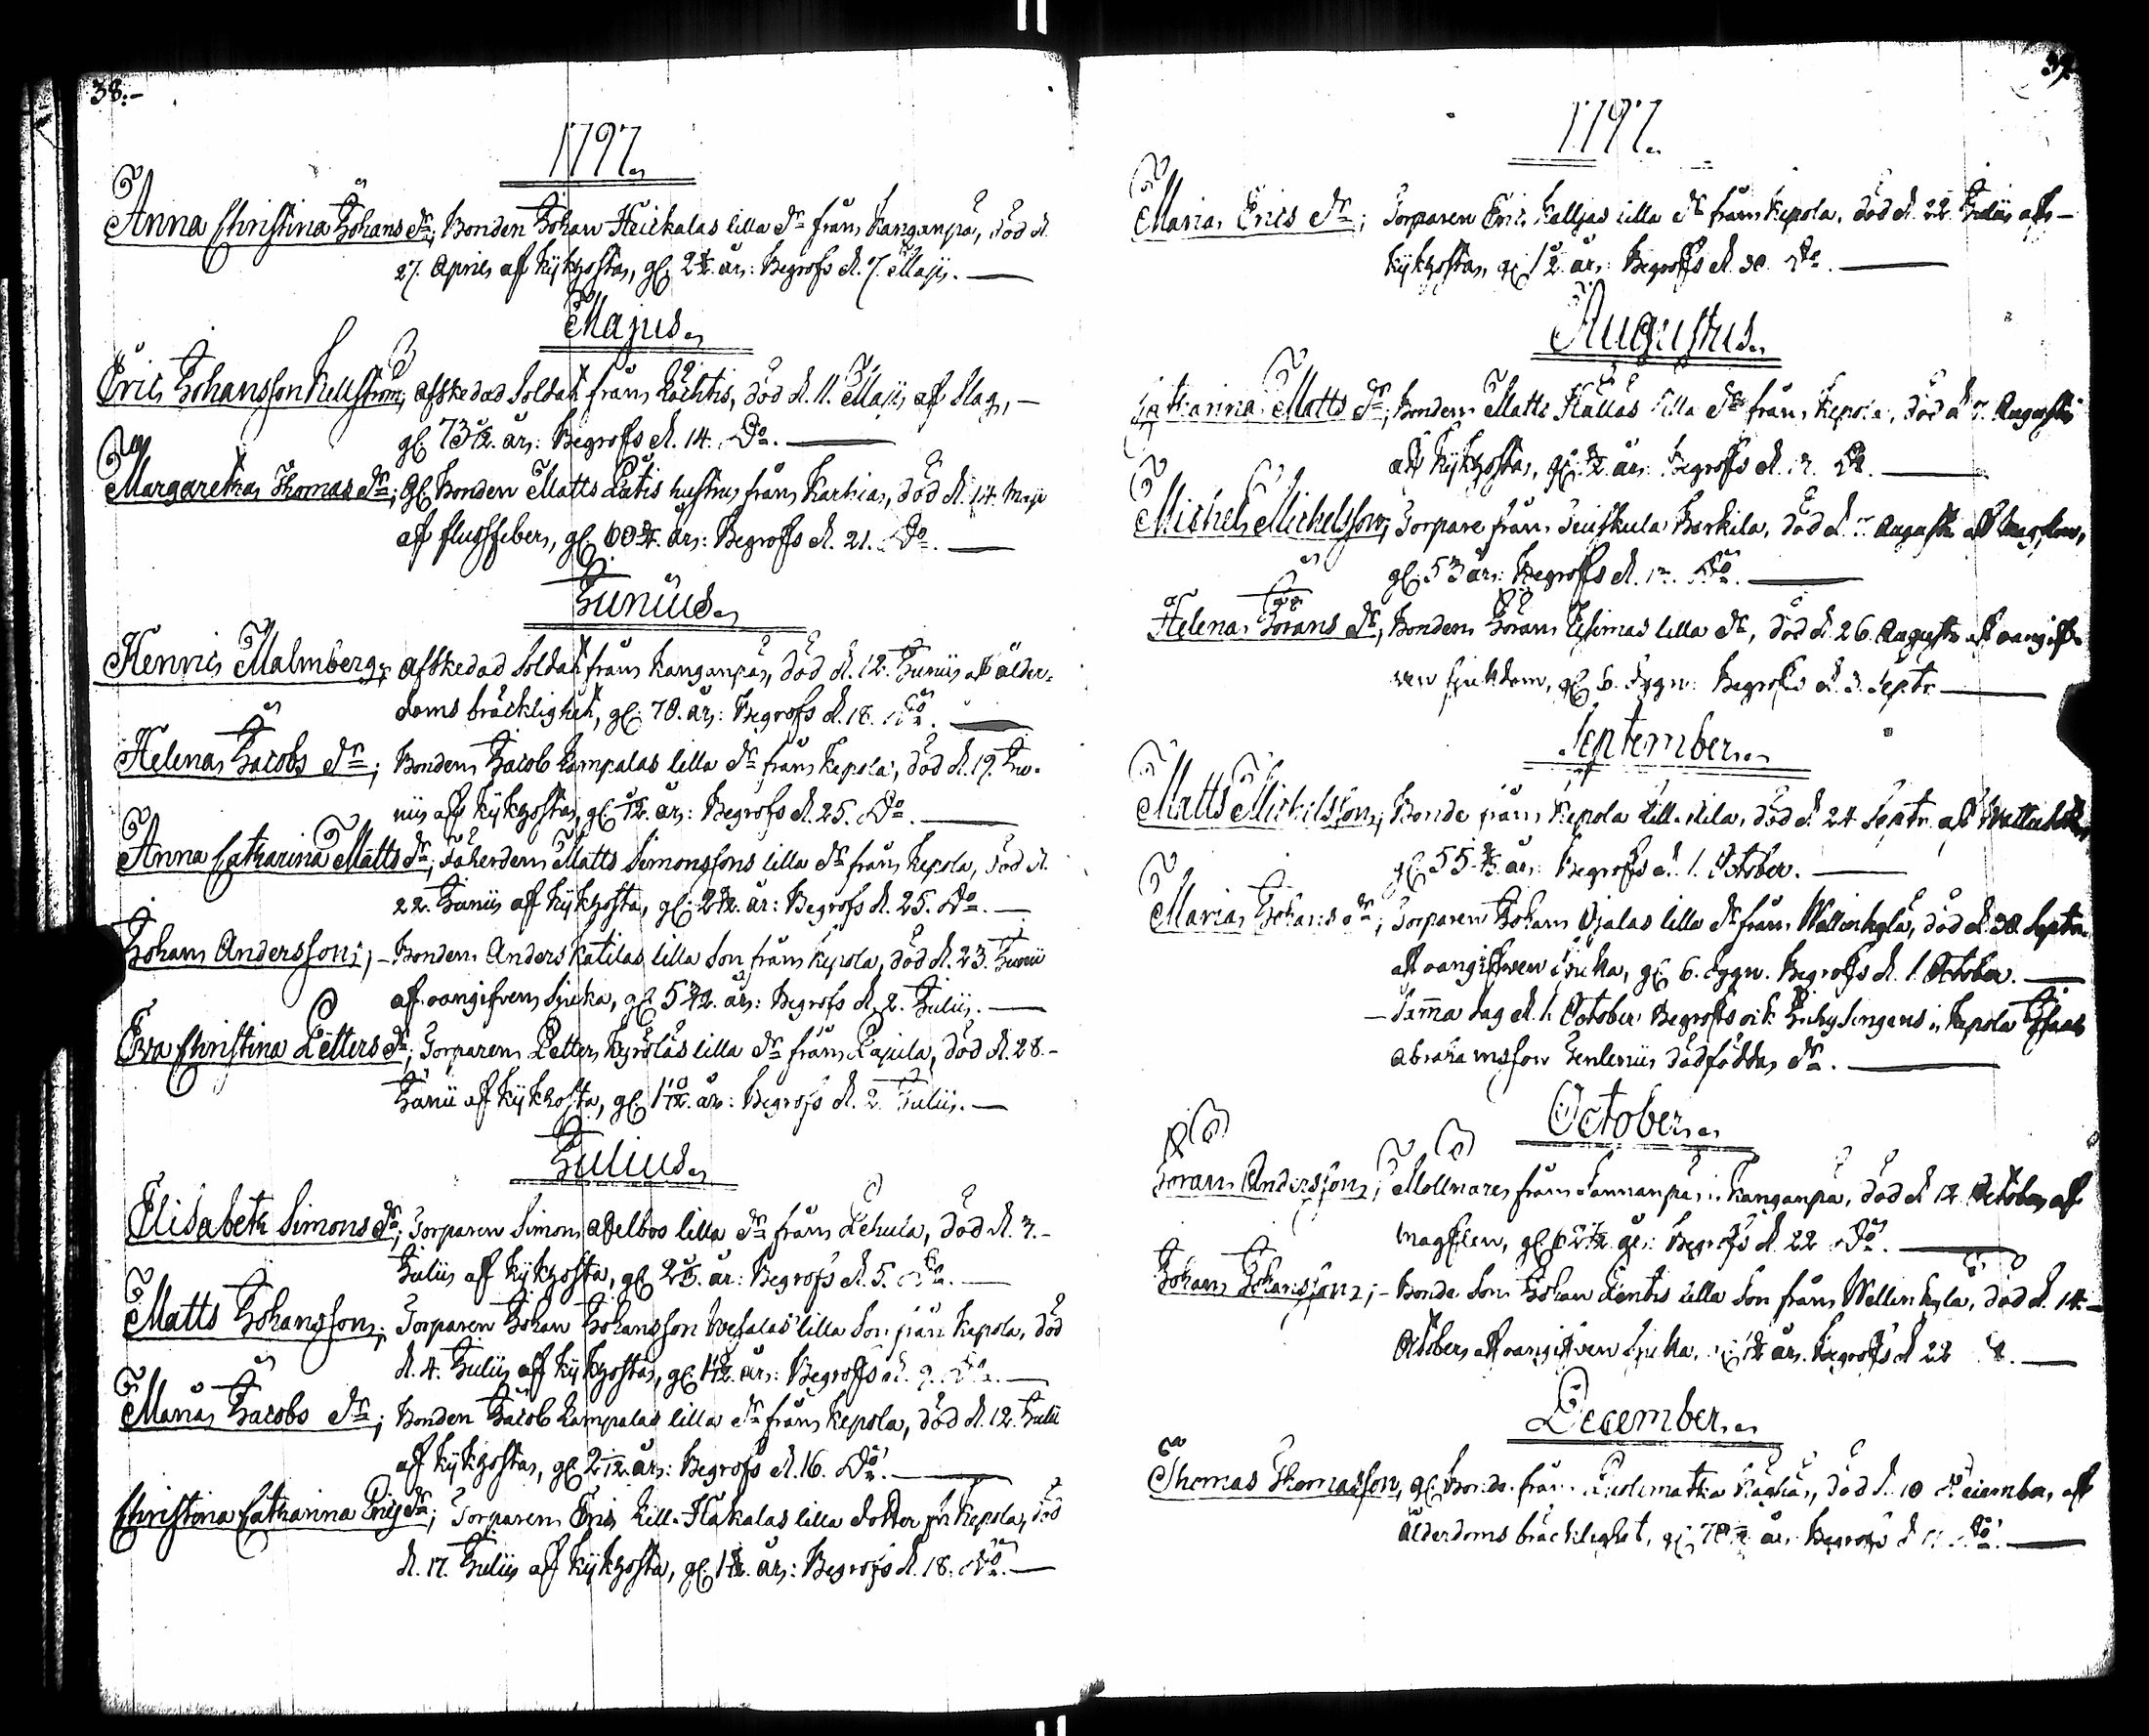 38.-
1797.
Anna Christina Johans dr; Bonden Johan Heickalas lilla dr från Kanganpä, död d.
27. April af kikhosta, gl. 2 år: Begrofs d. 7. Maji.
Majus.
Eric Johansson Kellström, afskedad Soldat från Lächtis, död d. 11. Maji af slag, -
gl. 73 år: Begrofs d. 14. Do.
Margaretha Thomas dr; gl. Bonden Matts Lätis hustru från Karhia, död d. 14. Maji
af flussfeber, gl. 60 år: Begrofs d. 21. Do.
Junius.
Henric Malmberg; afskedad Soldat från Kanganpä, död d. 12. Junii af ålder-
doms bräcklighet, gl. 70. år: Begrofs d. 18. Do.
Helena Jacobs dr; Bonden Jacob Lampalas lilla dr från Kepola, död d. 19. Ju-
nii af kikhosta, gl. år: Begrofs d. 25. Do.
Anna Catharina Matts dr; Matts Simonssons lilla dr från Kepola, död d.
22. Junii af kikhosta, gl. 2 år: Begrofs d. 25. Do.
Johan Andersson; - Bonden Anders Katilas lilla Son från Kepola, död d. 23. Junii
af oangifven Sjuka, gl. 5 år: Begrofs d. 2. Julii.
Eva Christina Petters dr; Torparen Petter Kyrölas lilla dr från Pajula, död d. 28.-
Junii af kikhosta, gl. 1 år: Begrofs d. 2. Julii.
Julius.
Elisabeth Simons dr; Torparen Simon lilla dr från Lehula, död d. 3.-
Julii af kikhosta, gl. 2 år: Begrofs d. 5. Do.
Matts Johansson; Torparen Johan Johansson lilla Son från Kepola, död
d. 4. Julii af kikhosta, gl. år: Begrofs d. 9. Do.
Maria Jacobs dr; Bonden Jacob Lampalas lilla dr från Kepola, död d. 12. Julii
af kikhosta, gl. 2 år: Begrofs d. 16. Do.
Christina Catharina Erics dr; Torparen Eric Lill-Hakalas lilla dotter fr. Kepola, död
d. 17. Julii af kikhosta, gl. 1 år: Begrofs d. 18. Do.
39.
1797.
Maria Erics dr; Torparen Eric Kalljas lilla dr från Kepola, död d. 22. Julii af -
kikhosta, gl. 1 år: Begrofs d. 30. Do.
Augustus.
Catharina Matts dr; Bonden Matts lilla dr från Kepola, död d. Augusti
af kikhosta, gl. år: Begrofs d. Do.
Michel Michelsson; Torpare från Barkila, död d. Augusti af
gl. 53 år: Begrofs d. Do.
Helena Görans dr; Bonden Göran lilla dr, död d. 26. Augusti af oangif-
ven sjukdom, gl. 6. dygn: Begrofs d. 3. Septr.
September.
Matts Michelsson; Bonde från Kepola död d. 24 Septr. af
gl. 55 år: Begrofs d. 1. October.
Maria Johans dr; Torparen Johan Ojalas lilla dr från Wallenkylä, död d. 30. Septr.
af oangifven Sjuka, gl. 6. dygn. Begrofs d. 1. October.
- Samma dag d. 1. October Begrofs ock Inhysingens i Kepola Isaac
Abrahamsson Genlenii dödfödda dr.
October.
Göran Andersson; Möllnare från i Kanganpä, död d. 12. October af
gl. 62 år: Begrofs d. 22 Do.
Johan Johansson; - Bonde Son Johan lilla Son från Wallenkylä, död d. 14.-
October af oangifven Sjuka, gl. år. Begrofs d. 22 Do.
December.
Thomas Thomasson, gl. Bonde från död d. 10 December af
ålderdoms bräcklighet, gl. 70 år. Begrofs d. Do.